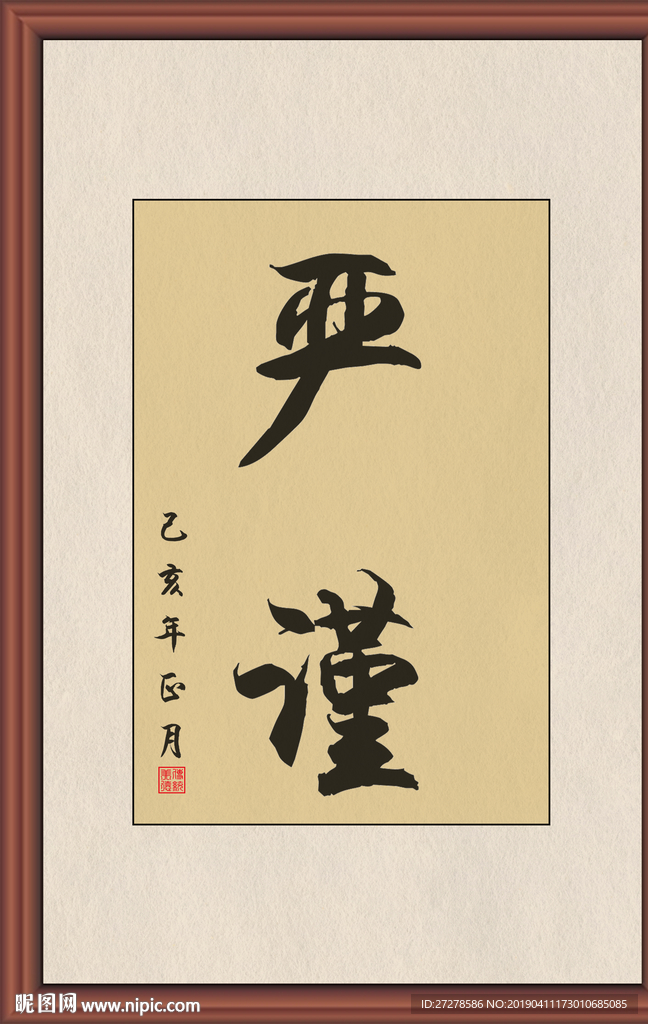 严谨
己亥年正月
昵图网 www.nipic.com
ID:27278586 NO:20190411173010685085